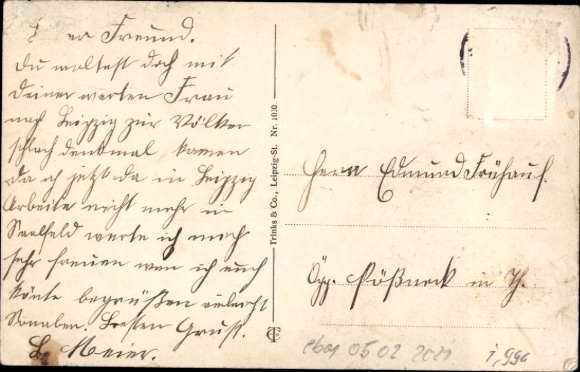 er Freund.
Du woltest doch mit
deiner werten Frau
nach Leipzig zur Völker
schlachdenkmal komen
da ich jetzt da in Leipzig
Arbeite nicht mehr in
Saalfeld werte ich mich
sehr freuen wen ich euch
könte begrüßen vieleicht
Sonaben. Besten Gruß.
Meier.
Trinks & Co., Leipzig-St. Nr. 1020.
Herrn Edmund Frühauf.
Pößneck in Th.
05 02 2021